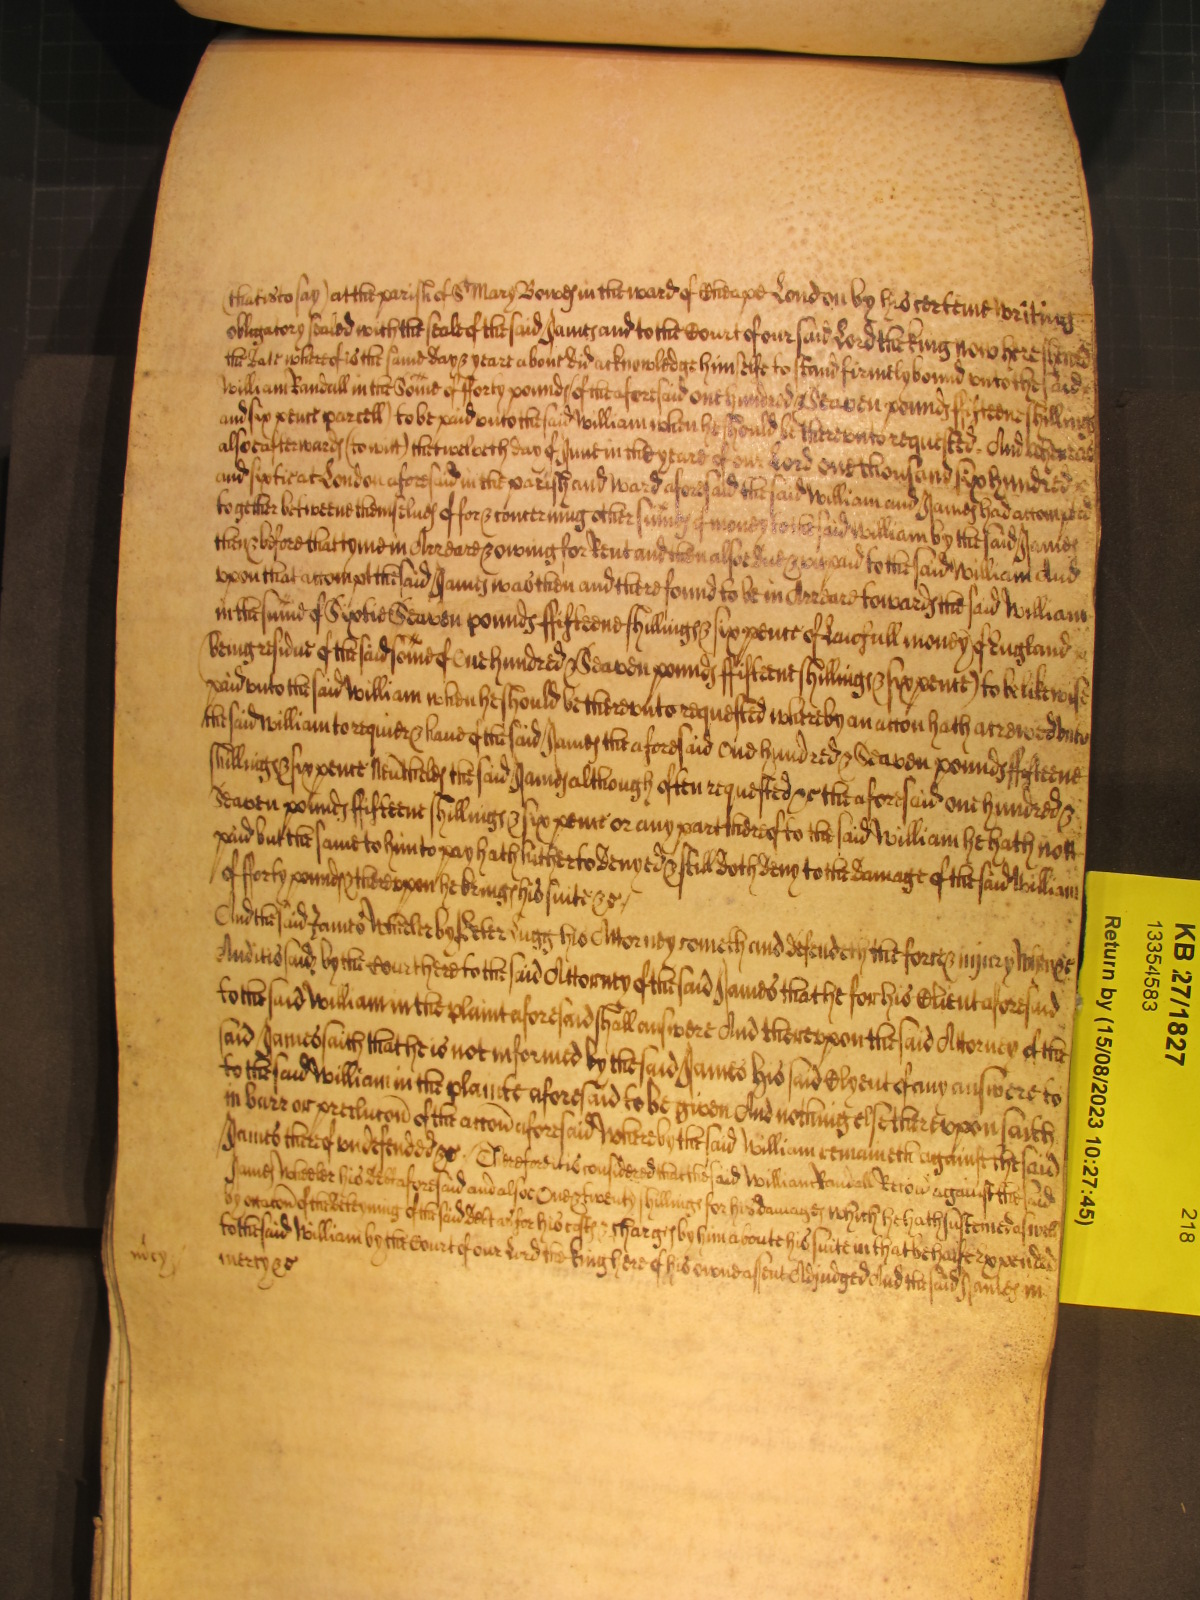 (that is to say) at the parish of St Mary Bowes in the ward of Cheape London by his certeine writing
obligatory sealed with the seale of the said James and to the Court of our said Lord the king now here shewed
the date whereof is the same day & yeare above did acknowledge himselfe to stand firmely bound unto the said
William Randall in the Some of fforty pounds of the aforesaid one hundred & Seaven pounds fifteene shillings
and six pence parcell) to be paid unto the said William when he should be thereunto requested. And whereas
alsoe afterwards (to wit) the twelveth day of June in the yeare of our Lord one thousand six hundred
and sixtie at London aforesaid in the parish and ward aforesaid the said William and James had accompted
together betweene themselues of for & concerning other summes of money to the said William by the said James
then & before that tyme in Arreare & owing for Rent and then alsoe due & unpaid to the said William And
upon that accompt the said James was then and there found to be in Arreare towards the said William
in the sume of Sixtie Seaven pounds ffifteene shillings & six pence of Lawfull money of England
being residue of the said some of One hundred & Seaven pounds ffifteene shillings & six pence) to be likewise
paid unto the said William when he should be thereunto requested whereby an accon hath acrewed unto
the said William to require & have of the said James the aforesaid One hundred & Seaven pounds ffifteene
shillings & six pence Neutheless the said James although often requested &c the aforesaid one hundred &
Seaven pounds ffifteene shillings & six pence or any part thereof to the said William he hath not
paid but the same to him to pay hath hitherto denyed & still doth deny to the damage of the said William
of fforty pounds & thereupon he brings his suite &c.
And the said James Wheeler by Peter Lugg his Attorney cometh and defendeth the force & injury When &c
And it is said by the Court here to the said Attorney of the said James that he for his Client aforesaid
to the said William in the plaint aforesaid shall answere And thereupon the said Attorney of the
said James saith that he is not informed by the said James his said Clyent of any answere to
to the said William in the plainte aforesaid to be given And nothing else thereupon saith
in barr or preclucon of the accon aforesaid Whereby the said William remaineth against the said
James thereof undefended &c. Therefore it is considered that the said William Randall Recou against the said
James Wheeler his Debt aforesaid and alsoe One & twenty shillings for his damages which he hath susteined aswell
by occacon of the deteyning of the said Debt as for his costs & charges by him aboute his suite in that behalfe expended
to the said William by the Court of our Lord the king here of his owne assent Adjudged And the said James in
mercy &c
mcy
KB 27/1827
13354583
218
Return by (15/08/2023 10:27:45)